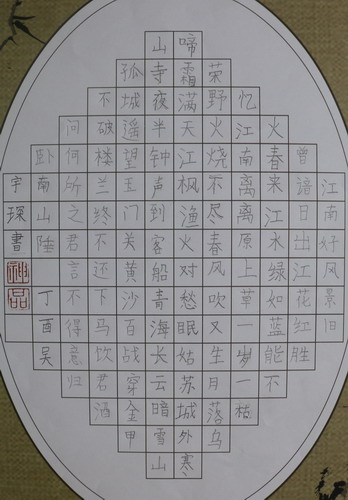 江南好风景旧
曾谙日出江花红胜
火春来江水绿如蓝能不
忆江南离离原上草一岁一枯
荣野火烧不尽春风吹又生月落乌
啼霜满天江枫渔火对愁眠姑苏城外寒
山寺夜半钟声到客船青海长云暗雪山
孤城遥望玉门关黄沙百战穿金甲
不破楼兰终不还下马饮君酒
问何所之君言不得意归
卧南山陲丁酉吴
宇琛書神品